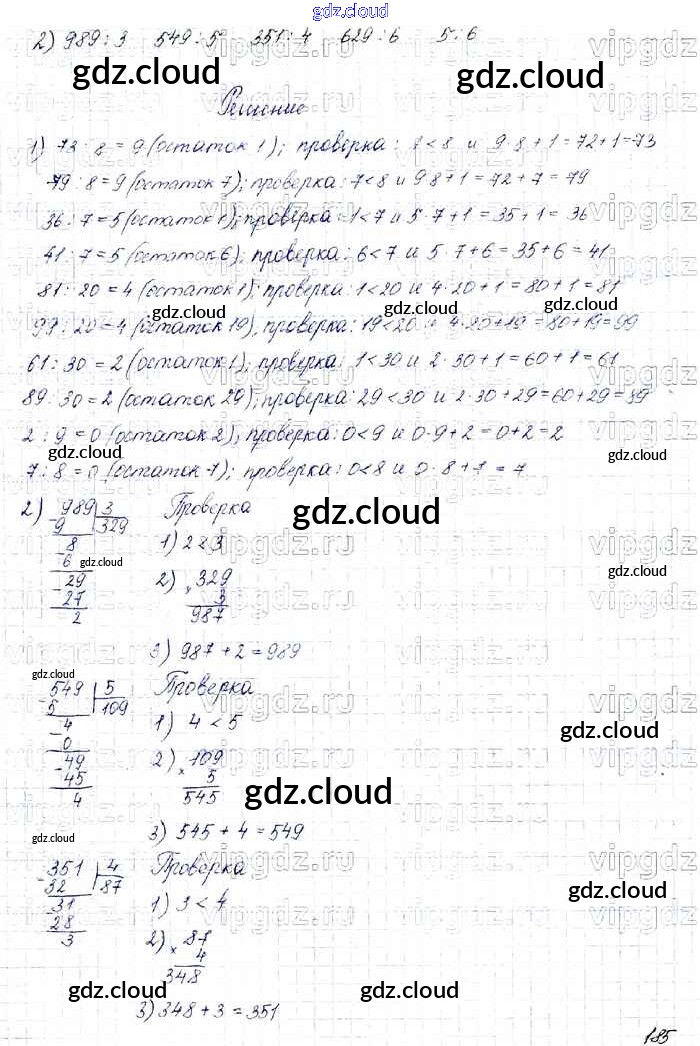 gdz.cloud
2) 989 : 3 549 : 5 351 : 4 629 : 6 5 : 6
gdz.cloud gdz.cloud
Решение
1) 73 : 8 = 9 (остаток 1); проверка: 1<8 и 9·8+1=72+1=73
79 : 8 = 9 (остаток 7); проверка: 7<8 и 9·8+1=72+7=79
36 : 7 = 5 (остаток 1); проверка: 1<7 и 5·7+1=35+1=36
41 : 7 = 5 (остаток 6), проверка: 6<7 и 5·7+6=35+6=41
81 : 20 = 4 (остаток 1); проверка: 1<20 и 4·20+1=80+1=81
gdz.cloud gdz.cloud
99 : 20 = 4 (остаток 19), проверка: 19<20 и 4·20+19=80+19=99
61 : 30 = 2 (остаток 1); проверка: 1<30 и 2·30+1=60+1=61
89 : 30 = 2 (остаток 29); проверка: 29<30 и 2·30+29=60+29=89
2 : 9 = 0 (остаток 2), проверка: 0<9 и 0·9+2=0+2=2
gdz.cloud
7 : 8 = 0 (остаток 7); проверка: 0<8 и 0·8+7=7
2) 989 3 Проверка
9 329
gdz.cloud
8 1) 2<3
6 gdz.cloud
29 2) 329
gdz.cloud
27 3
2 987
3) 987+2=989
gdz.cloud
549 5 Проверка
5 109
4 1) 4<5
gdz.cloud
0
49 2) × 109
45 5
4 545
gdz.cloud
3) 545+4=549
gdz.cloud
351 4 Проверка
32 87
31 1) 3<4
gdz.cloud
28
3 2) × 87
4
348
gdz.cloud gdz.cloud
3) 348+3=351
185
vipgdz.ru